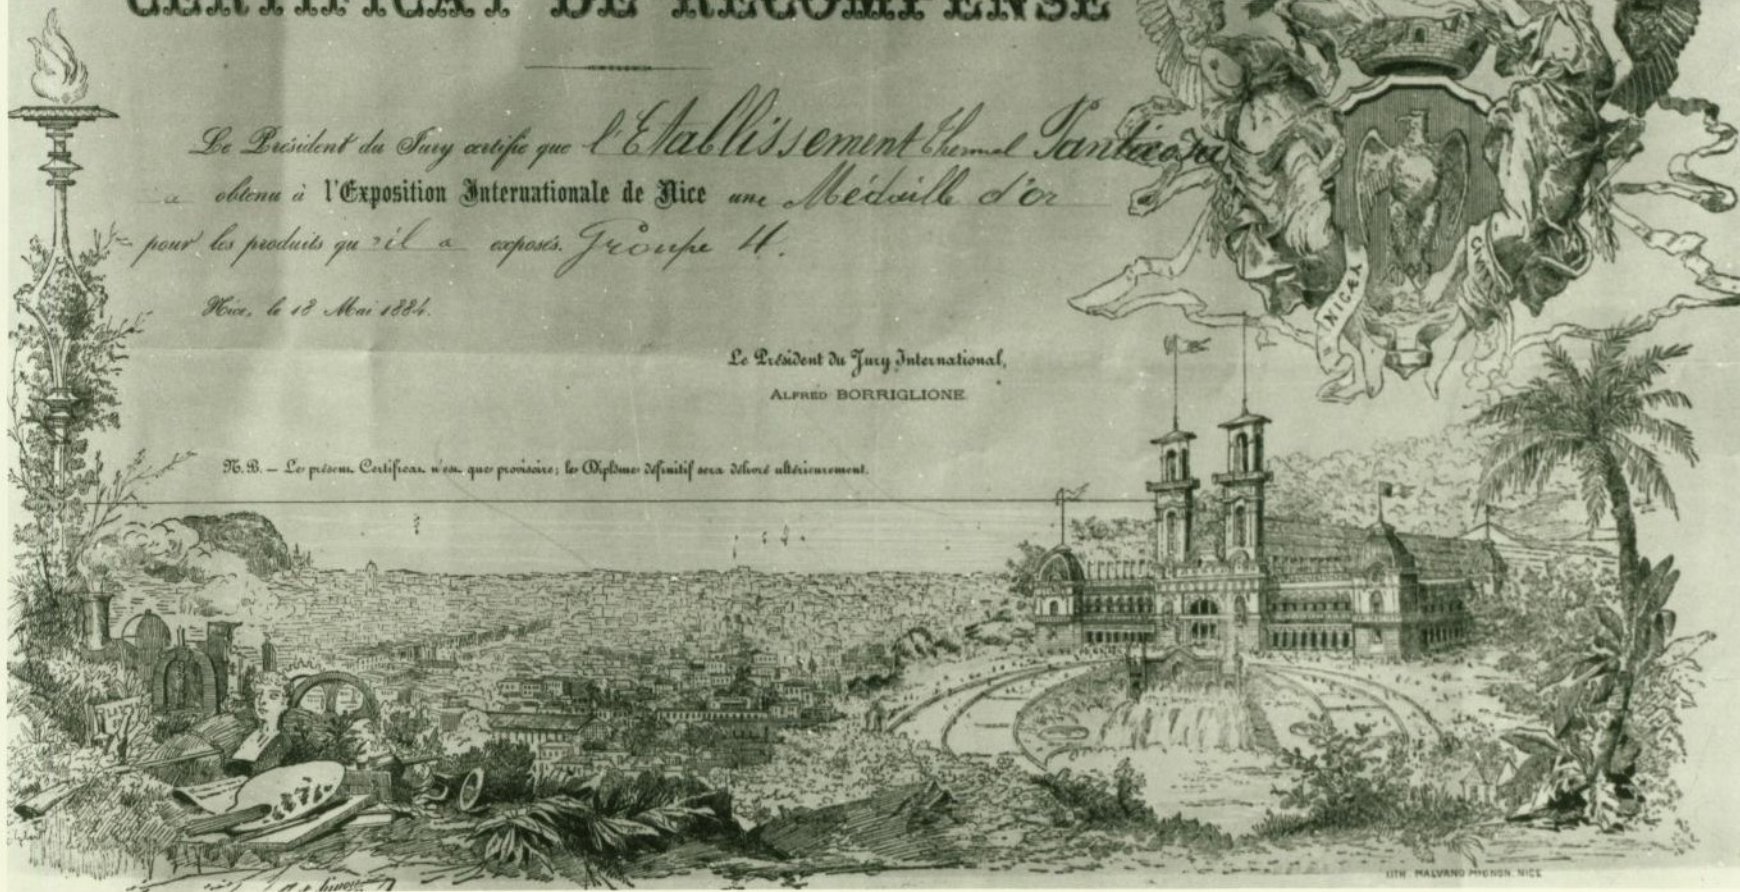 CERTIFICAT DE RÉCOMPENSE
Le Président du Jury certifie que l'Etablissement Thermal Panticosa
a obtenu à l'Exposition Internationale de Nice une Médaille d'or
pour les produits qu'il a exposés. Groupe 4.
Nice, le 18 Mai 1884.
Le Président du Jury International,
ALFRED BORRIGLIONE
N. B. — Le présent Certificat n'est que provisoire; le Diplôme définitif sera délivré ultérieurement.
NICÆA
CIV
LITH. MALVANO MIGNON. NICE